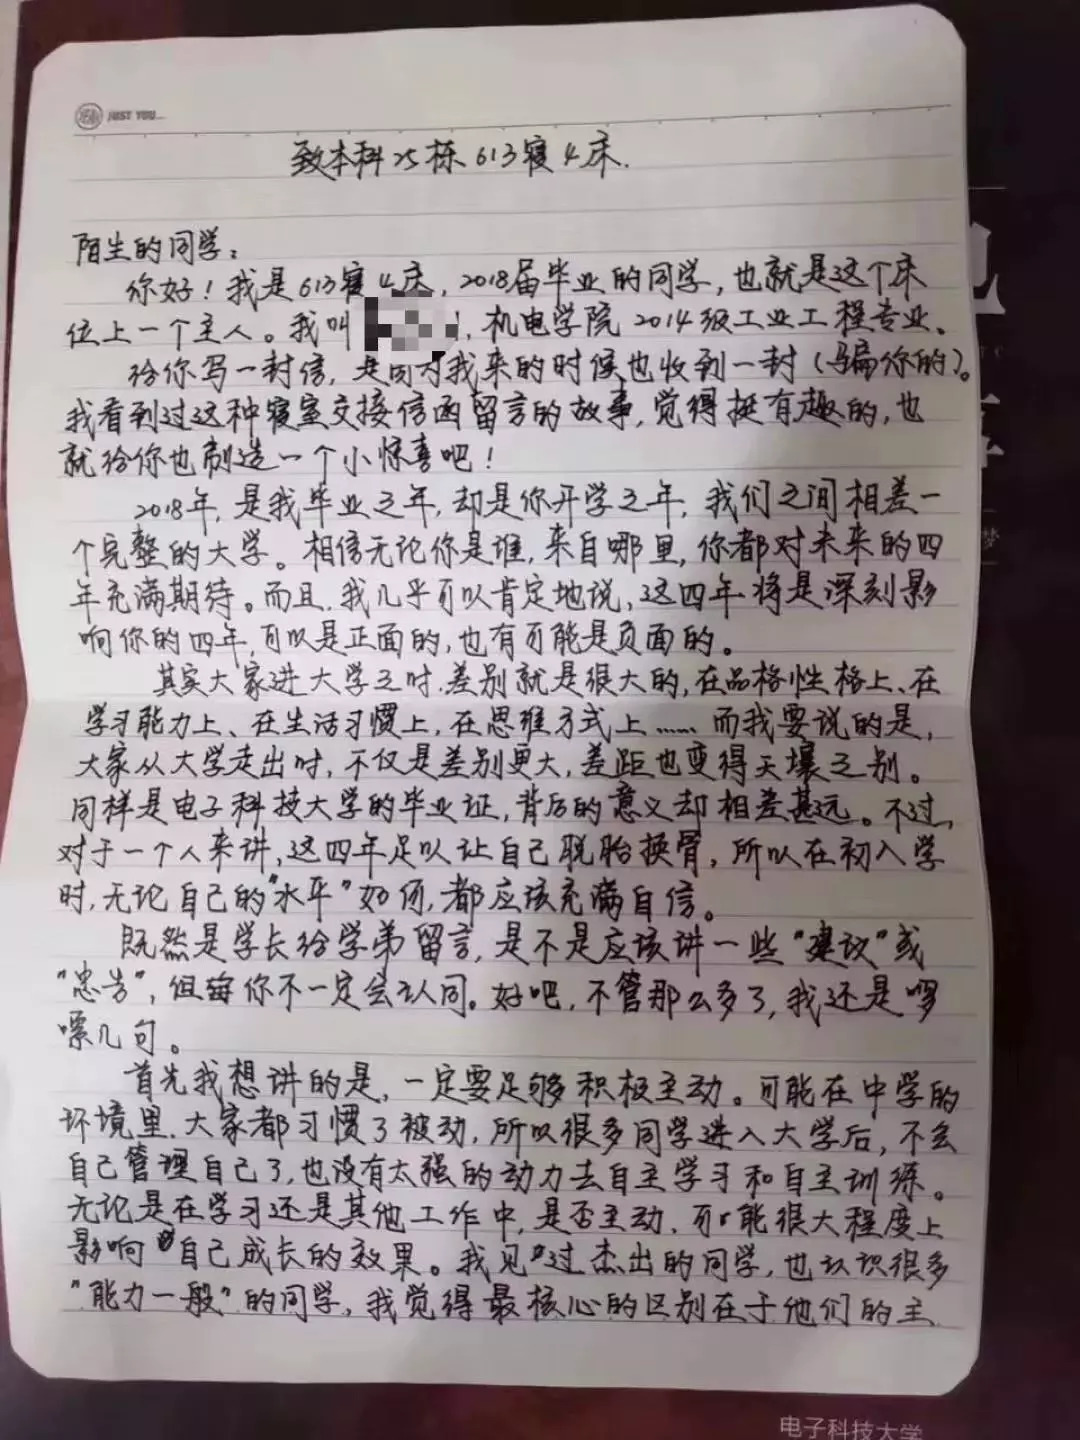 JUST YOU...
致本科25栋613寝4床.
陌生的同学：
你好！我是613寝4床，2018届毕业的同学，也就是这个床
位上一个主人。我叫，机电学院2014级工业工程专业、
给你写一封信，是因为我来的时候也收到一封（骗你的）。
我看到过这种寝室交接信函留言的故事，觉得挺有趣的，也
就给你也制造一个小惊喜吧！
2018年，是我毕业之年，却是你开学之年，我们之间相差一
个完整的大学。相信无论你是谁，来自哪里，你都对未来的四
年充满期待。而且，我几乎可以肯定地说，这四年将是深刻影
响你的四年，可以是正面的，也有可能是负面的。
其实大家进大学之时，差别就是很大的，在品格性格上、在
学习能力上、在生活习惯上，在思维方式上……而我要说的是，
大家从大学走出时，不仅是差别更大，差距也变得天壤之别。
同样是电子科技大学的毕业证，背后的意义却相差甚远。不过，
对于一个人来讲，这四年足以让自己脱胎换骨，所以在初入学
时，无论自己的“水平”如何，都应该充满自信。
既然是学长给学弟留言，是不是应该讲一些“建议”或
“忠告”，但你不一定会认同。好吧，不管那么多了，我还是啰
嗦几句。
首先我想讲的是，一定要足够积极主动。可能在中学的
环境里，大家都习惯了被动，所以很多同学进入大学后，不会
自己管理自己了，也没有太强的动力去自主学习和自主训练。
无论是在学习还是其他工作中，是否主动，可能很大程度上
影响自己成长的效果。我见过杰出的同学，也认识很多
“能力一般”的同学，我觉得最核心的区别在于他们的主
梦
电子科技大学